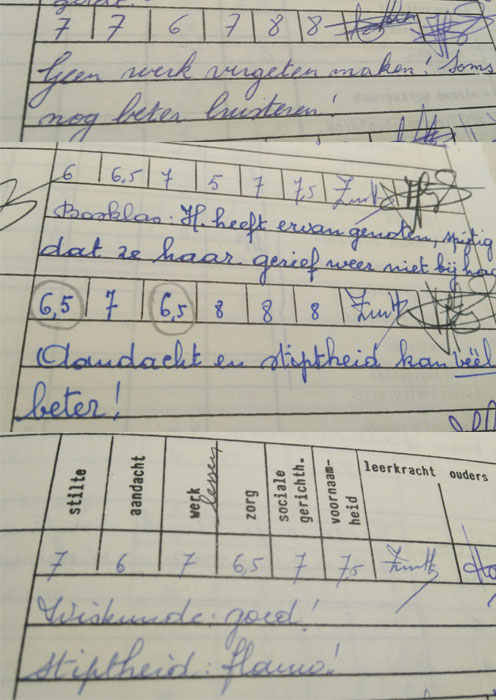 7 7 6 7 8 8
Geen werk vergeten maken! Soms
nog beter luisteren!
6 6,5 7 5 7 7,5
Bosklas: H. heeft ervan genoten, spijtig
dat ze haar gerief weer niet bij had
6,5 7 6,5 8 8 8
Aandacht en stiptheid kan véél
beter!
stilte aandacht werk lessen zorg sociale gerichth. voornaam-heid leerkracht ouders
7 6 7 6,5 7 7,5
Wiskunde: goed!
Stiptheid: flauw!